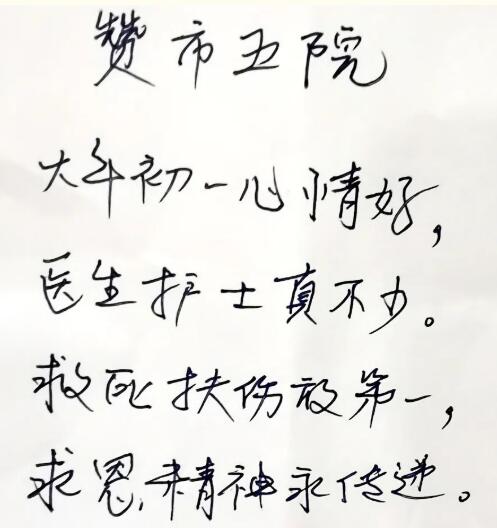 赞市五院
大年初一心情好，
医生护士真不少。
救死扶伤放第一，
求恩精神永传递。